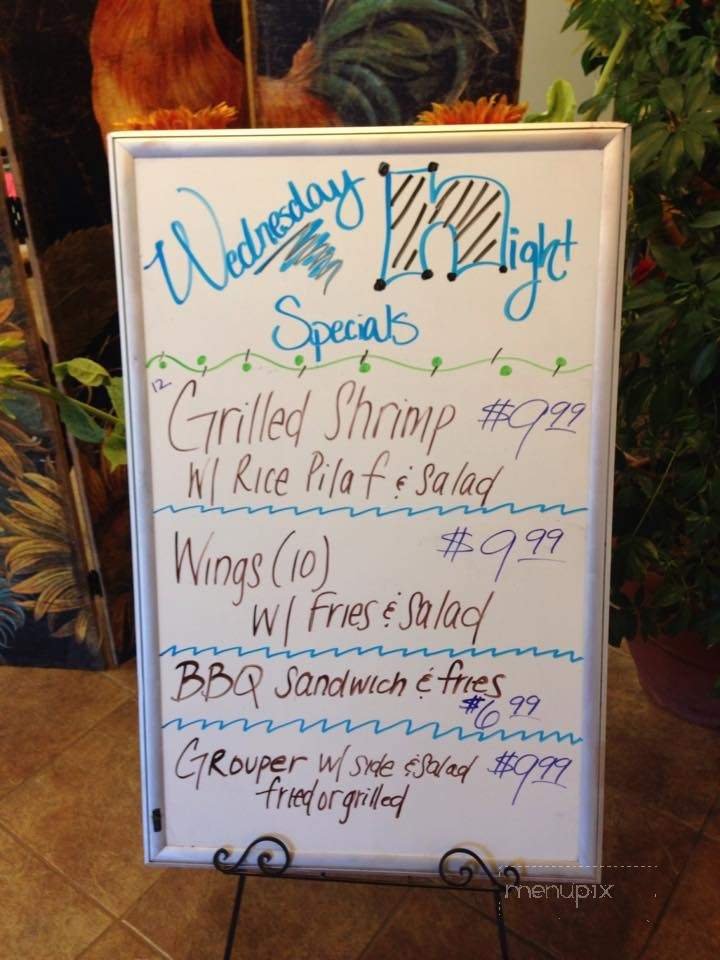 Wednesday night
Specials
12 Grilled Shrimp $9.99
W/ Rice Pilaf & Salad
Wings (10) $9.99
W/ Fries & Salad
BBQ Sandwich & fries
$6.99
Grouper W/ Side & Salad $9.99
fried or grilled
menupix